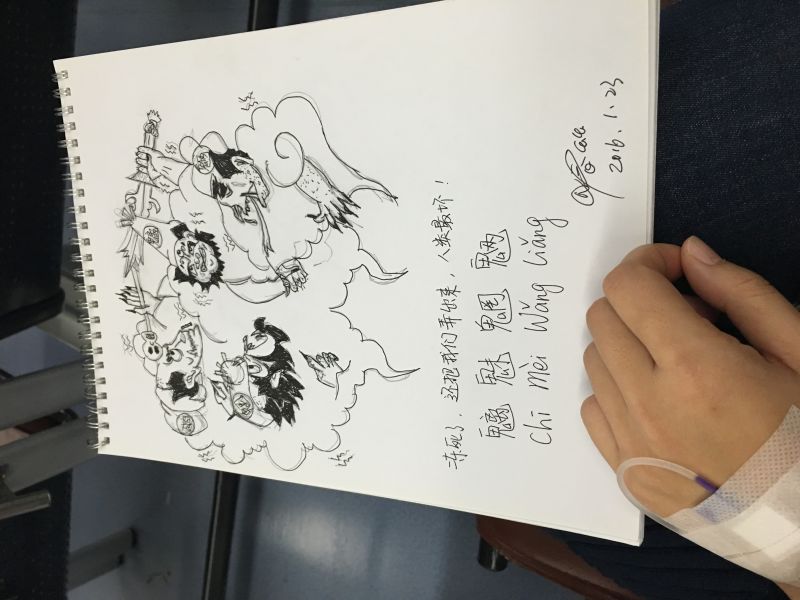 冻死了，还把我们弄出来，人类最坏！
魑 魅 魍 魉
Chī mèi Wǎng Liǎng
2016.1.23